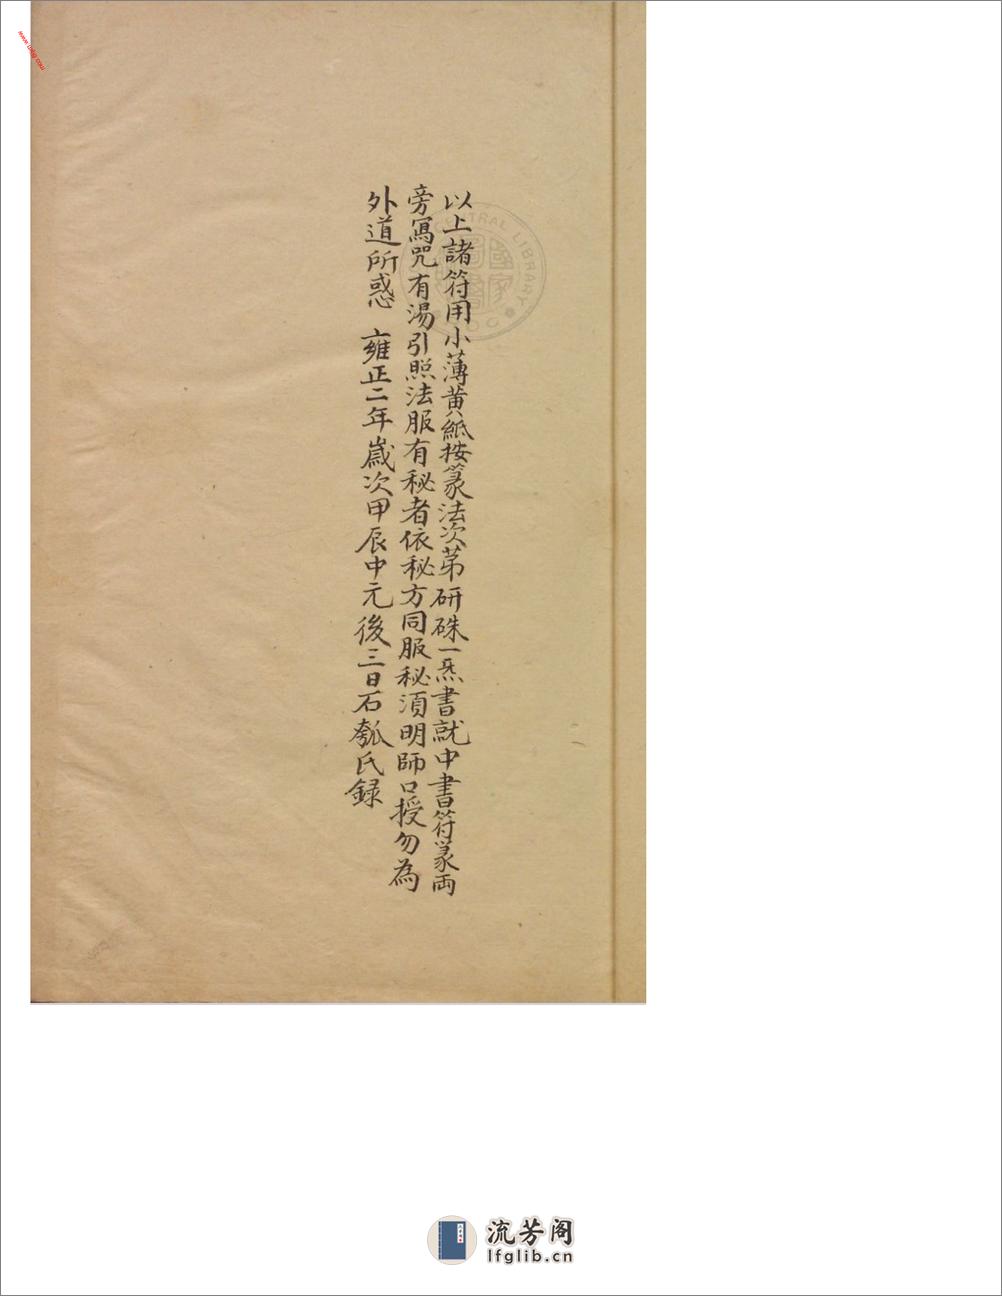 以上諸符用小薄黄紙按篆法次苐研硃一炁書就中書符篆兩
旁冩咒有湯引照法服有秘者依秘方同服秘須明師口授勿為
外道所惑 雍正二年歲次甲辰中元後三日石瓠氏録
CENTRAL LIBRARY
國家圖書館
流芳阁
lfglib.cn